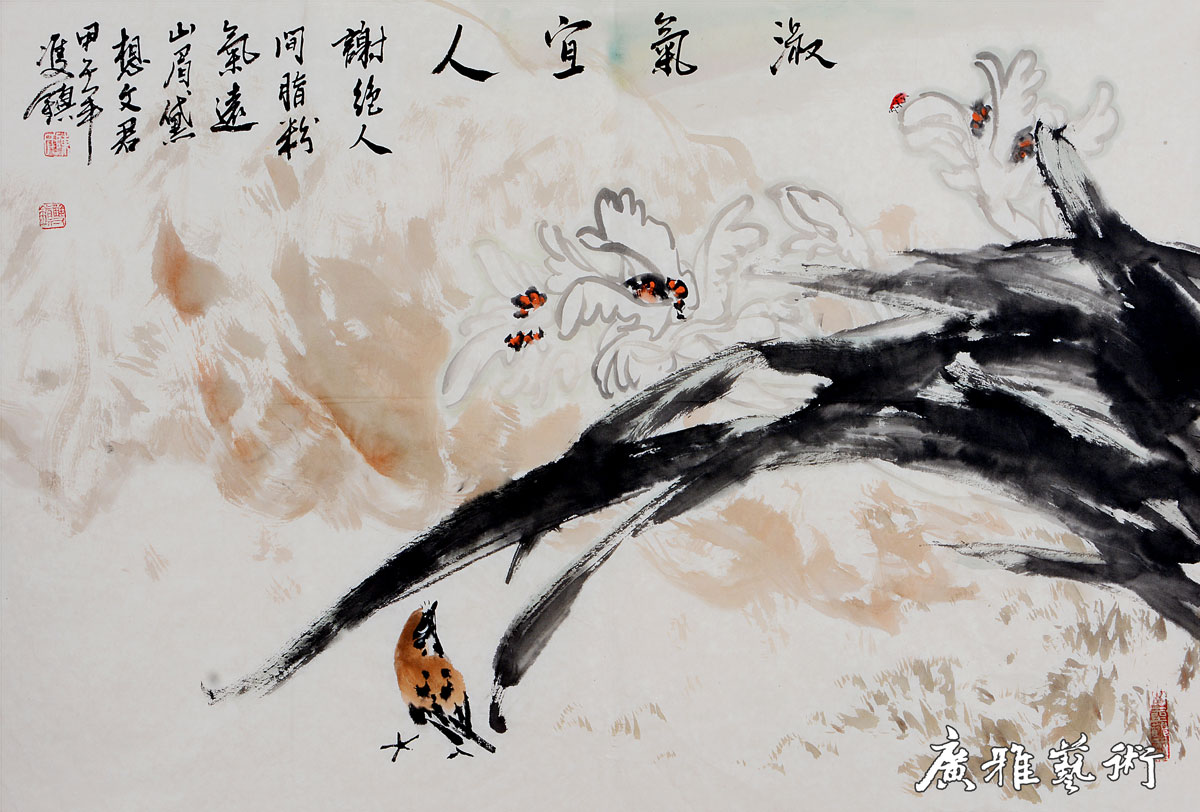 淑氣宜人
謝絕人
間脂粉
氣遠
山眉黛
想文君
甲子年
鎮
廣雅藝術